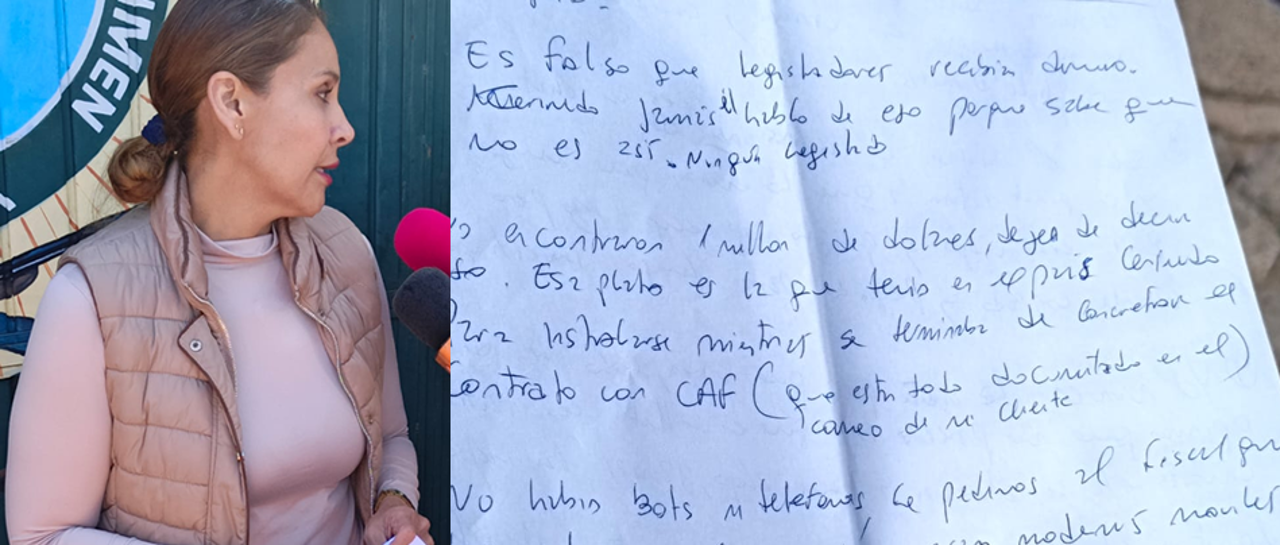 IMEN
Es falso que legisladores recibian dinero.
Jamás él hablo de eso porque sabe que
No es así. Ningún legislad
encontraron 1 millon de dolares, dejen de decir
eso. Esa plata es la que tenia en el pais
para instalarse mientras se terminaba de concretar el
Contrato con CAF (que esta todo documentado en el)
correo de mi cliente
No habia Bots ni telefonos le pedimos al Fiscal que